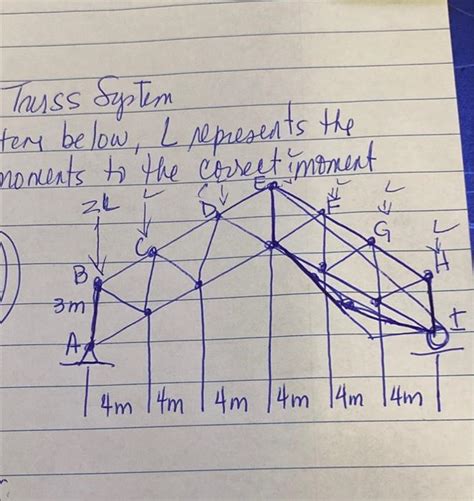 Truss System
tem below, L represents the
moments to the correct moment
2L L L L L L L
B C D E F G H
3m
A I
4m 4m 4m 4m 4m 4m